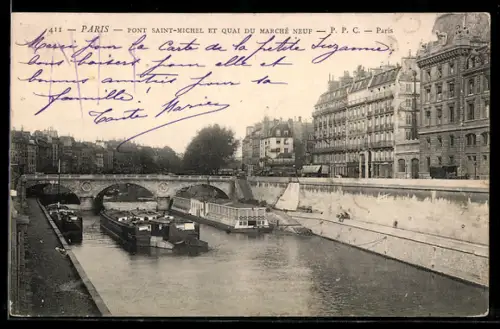 411 – PARIS – PONT SAINT-MICHEL ET QUAI DU MARCHÉ NEUF – P. P. C. – Paris
Merci pour la Carte de la petite Suzanne,
bons baisers pour elle et
bonne amitiés pour la
famille
Marie